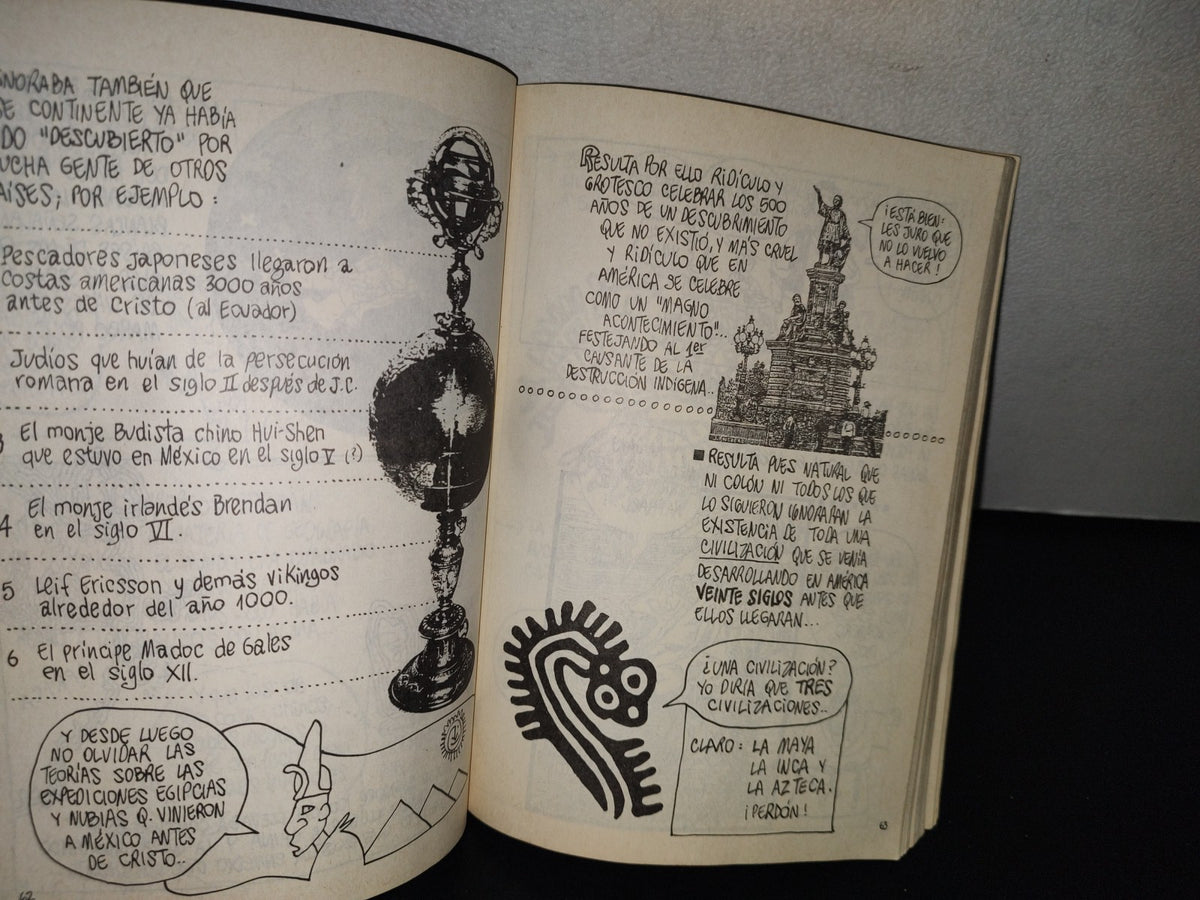 NORABA TAMBIÉN QUE
SE CONTINENTE YA HABÍA
DO "DESCUBIERTO" POR
UCHA GENTE DE OTROS
AÍSES; POR EJEMPLO :
Pescadores japoneses llegaron a
costas americanas 3000 años
antes de Cristo (al Ecuador)
Judíos que huían de la persecución
romana en el siglo II después de J.C.
3 El monje Budista chino Hui-Shen
que estuvo en México en el siglo V (?)
4 El monje irlandés Brendan
en el siglo VI.
5 Leif Ericsson y demás vikingos
alrededor del año 1000.
6 El príncipe Madoc de Gales
en el siglo XII.
Y DESDE LUEGO
NO OLVIDAR LAS
TEORÍAS SOBRE LAS
EXPEDICIONES EGIPCIAS
Y NUBIAS Q. VINIERON
A MÉXICO ANTES
DE CRISTO..
62
RESULTA POR ELLO RIDÍCULO Y
GROTESCO CELEBRAR LOS 500
AÑOS DE UN DESCUBRIMIENTO
QUE NO EXISTIÓ, Y MÁS CRUEL
Y RIDÍCULO QUE EN
AMÉRICA SE CELEBRE
COMO UN "MAGNO
ACONTECIMIENTO"..
FESTEJANDO AL 1er
CAUSANTE DE LA
DESTRUCCIÓN INDÍGENA..
¡ESTÁ BIEN:
LES JURO QUE
NO LO VUELVO
A HACER!
RESULTA PUES NATURAL QUE
NI COLÓN NI TODOS LOS QUE
LO SIGUIERON IGNORARAN LA
EXISTENCIA DE TODA UNA
CIVILIZACIÓN QUE SE VENÍA
DESARROLLANDO EN AMÉRICA
VEINTE SIGLOS ANTES QUE
ELLOS LLEGARAN...
¿UNA CIVILIZACIÓN?
YO DIRÍA QUE TRES
CIVILIZACIONES..
CLARO: LA MAYA
LA INCA Y
LA AZTECA.
¡PERDÓN!
63